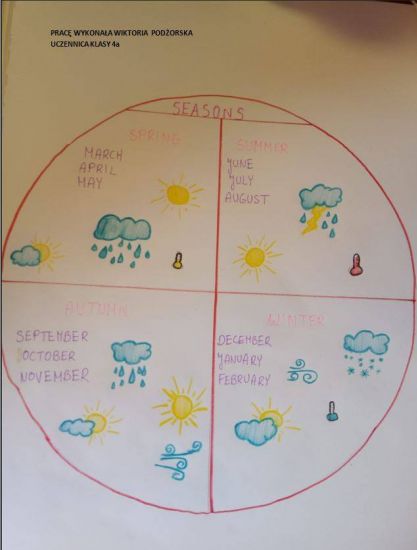 PRACĘ WYKONAŁA WIKTORIA PODŻORSKA
UCZENNICA KLASY 4a
SEASONS
SPRING
MARCH
APRIL
MAY
SUMMER
JUNE
JULY
AUGUST
AUTUMN
SEPTEMBER
OCTOBER
NOVEMBER
WINTER
DECEMBER
JANUARY
FEBRUARY